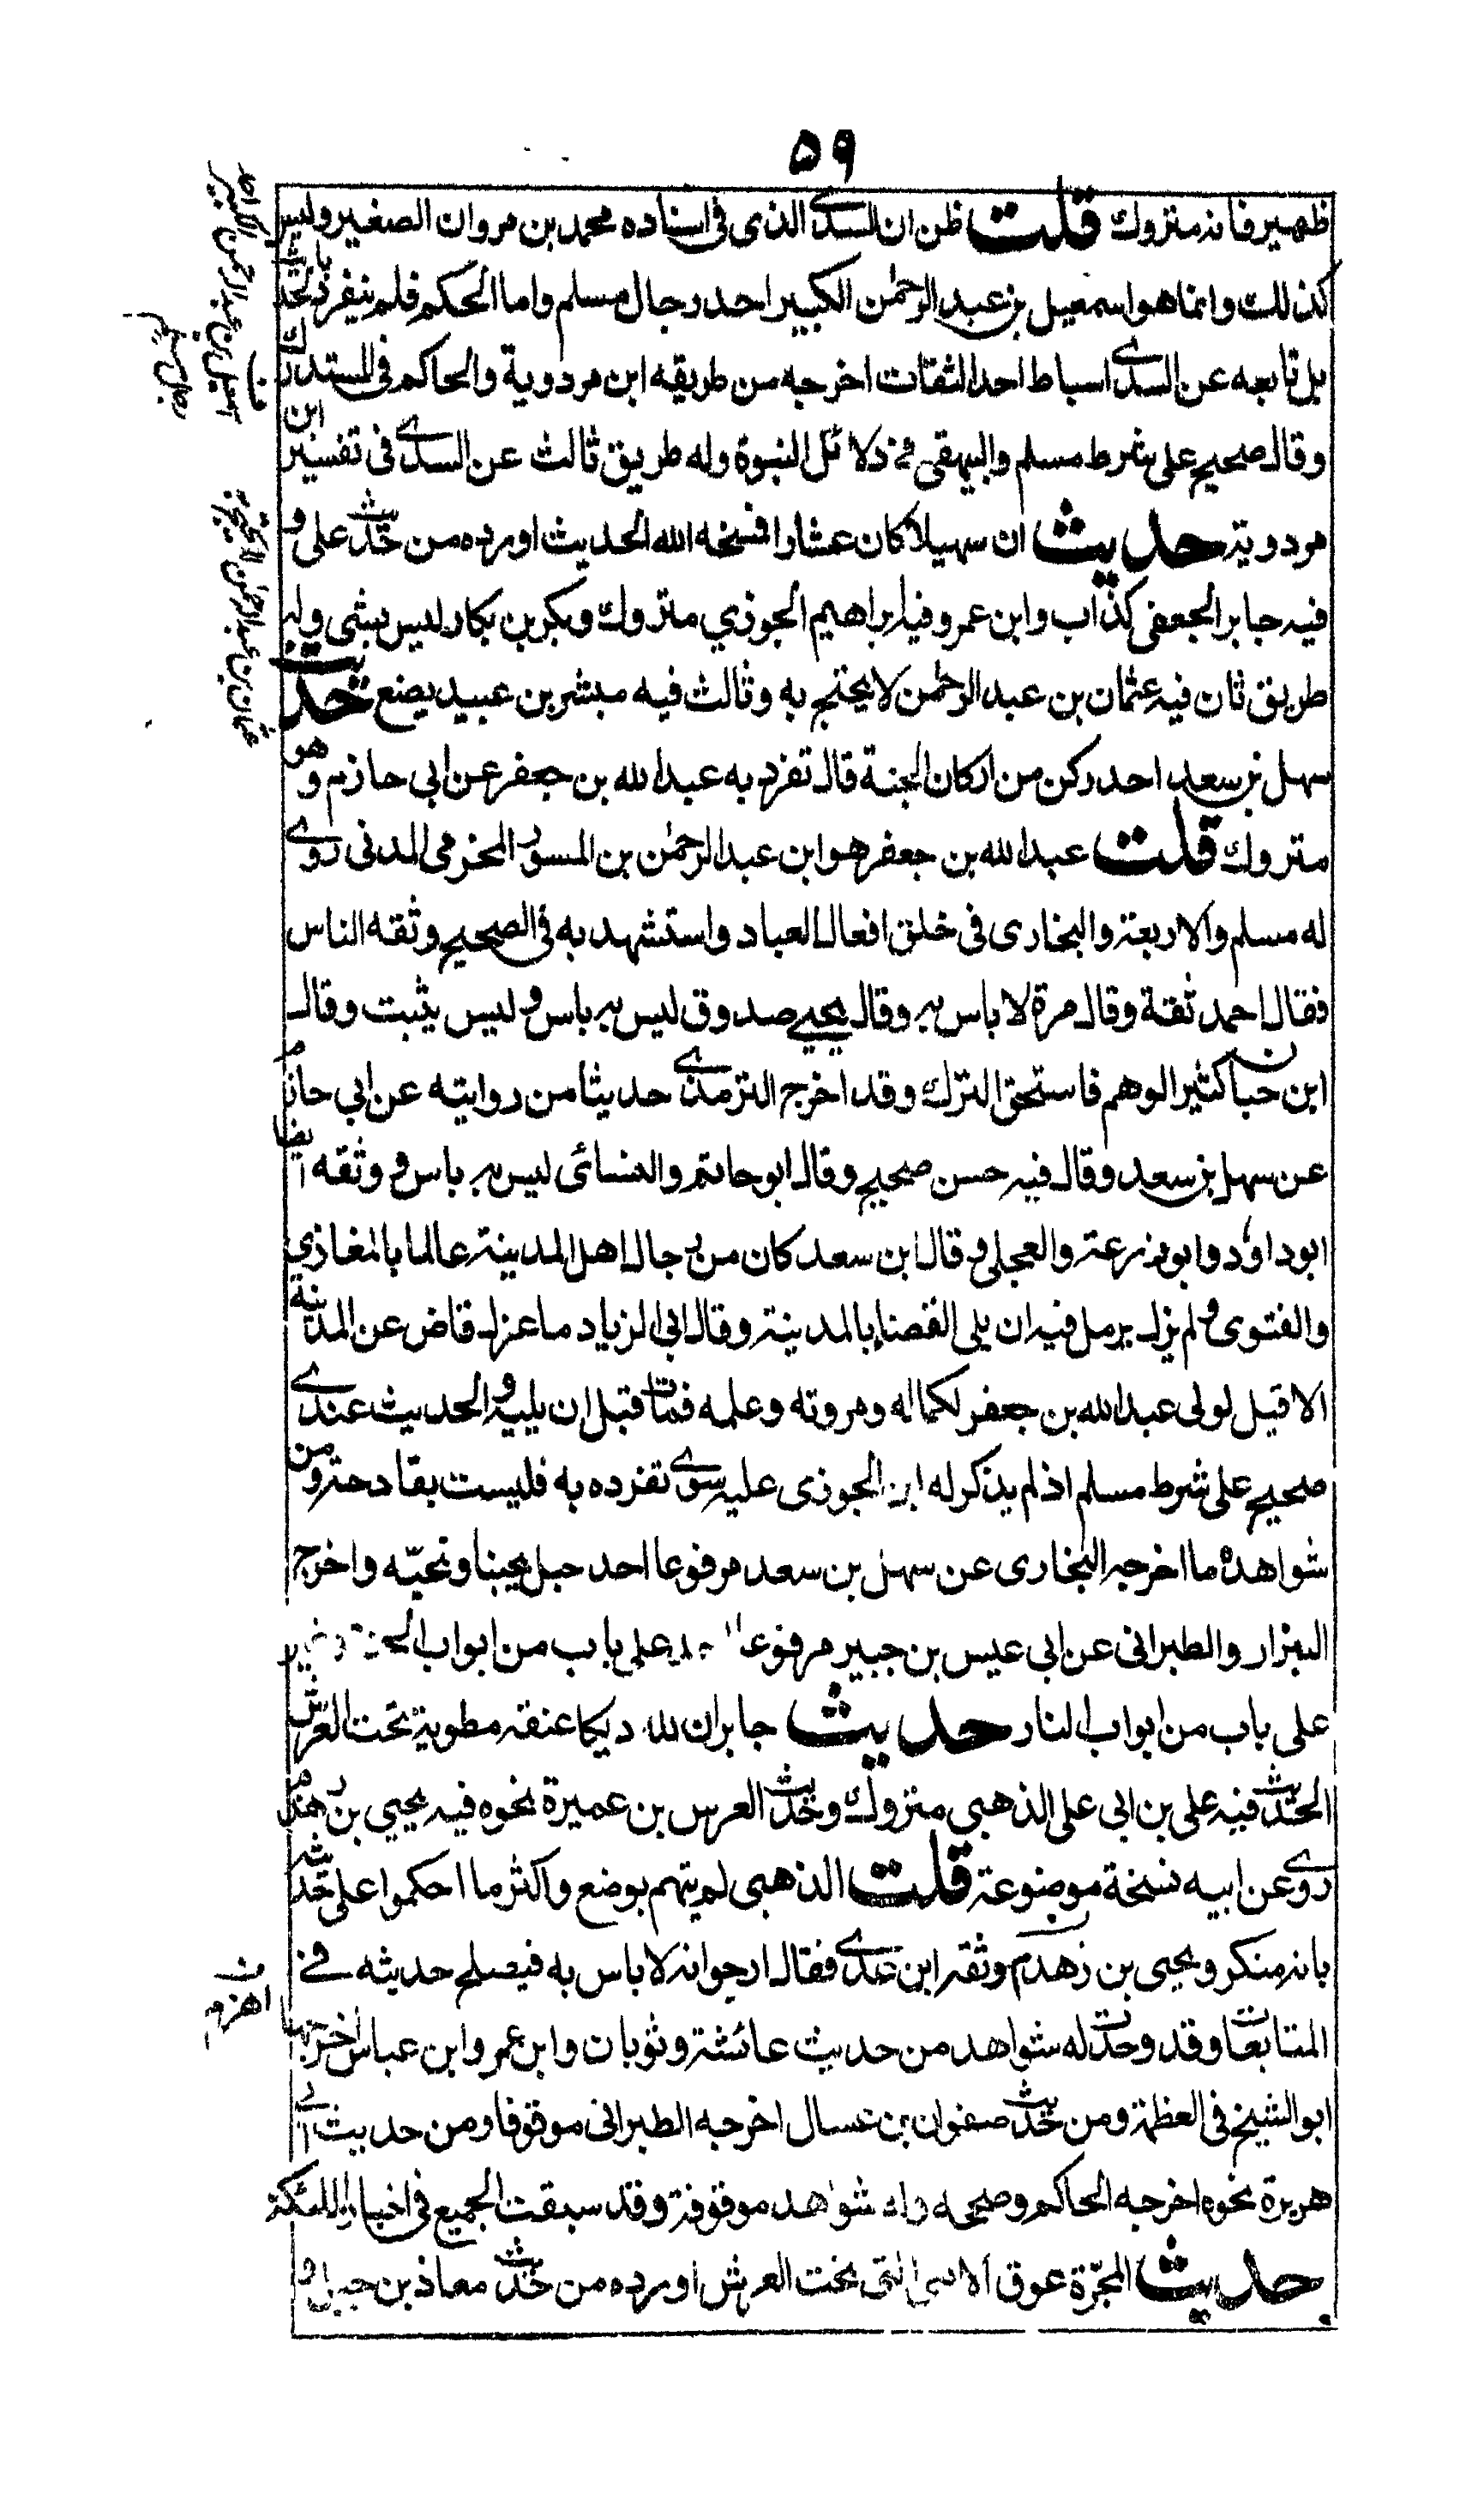 ٥٩
ظهير فانه متروك قلت ظن ان السدى الذى فى اسناده محمد بن مروان الصغير وليس
كذلك وانما هو اسمعيل بن عبد الرحمٰن الكبير احد رجال مسلم واما الحكم فلم ينفرد بالحديث
بل تابعه عن السدى اسباط احد الثقات اخرجه من طريقه ابن مردوية والحاكم فى المستدرك
وقال صحيح على شرط مسلم والبيهقى فى دلائل النبوة وله طريق ثالث عن السدى فى تفسير ابن
مردويه حديث ان سهيلا كان عشارا فمسخه الله الحديث اورده من حديث على و
فيه جابر الجعفى كذاب وابن عمر وفيه ابراهيم الجوزي متروك وبكر بن بكار ليس بشى وله
طريق ثان فيه عثمان بن عبد الرحمٰن لا يحتج به وثالث فيه مبشر بن عبيد يضع حديث
سهل بن سعد احد ركن من اركان الجنة قال تفرد به عبد الله بن جعفر عن ابى حازم وهو
متروك قلت عبد الله بن جعفر هو ابن عبد الرحمٰن بن المسور المخرمى المدنى روى
له مسلم والاربعة والبخارى فى خلق افعال العباد واستشهد به فى الصحيح وثقه الناس
فقال احمد ثقة وقال مرة لا باس به وقال يحيى صدوق ليس به باس وليس يثبت وقال
ابن حبان كثير الوهم فاستحق الترك وقد اخرج الترمذى حديثا من روايته عن ابى حازم
عن سهل بن سعد وقال فيه حسن صحيح وقال ابو حاتم والنسائى ليس به باس و وثقه ايضا
ابو داؤد وابو زرعة والعجلى وقال ابن سعد كان من رجال اهل المدينة عالما بالمغازي
والفتوى ولم يزل يرمل فيه ان يلى القضاء بالمدينة وقال ابى الزياد ما عزل قاض عن المدينة
الا قيل لولى عبد الله بن جعفر لكماله ومروته وعلمه فمات قبل ان يليه والحديث عندى
صحيح على شرط مسلم اذ لم يذكر له ابن الجوزى عليه سوى تفرده به فليست بقادحة ومن
شواهده ما اخرجه البخارى عن سهل بن سعد مرفوعا احد جبل يحبنا ونحبّه واخرج
البزار والطبرانى عن ابى عيس بن جبير مرفوعا على باب من ابواب
على باب من ابواب النار حديث جابر ان لله ديكا عنقه مطوية تحت العرش
الحديث فيه على بن ابى على الذهبى متروك وحديث العرس بن عميرة نحوه فيه يحيى بن زهدم
روى عن ابيه نسخة موضوعة قلت الذهبى لم يتهم بوضع واكثر ما احكموا على حديثه
بانه منكر ويحيى بن زهدم وثقه ابن عدى فقال ارجو انه لا باس به فيصلح حديثه فى
المتابعات وقد وجدت له شواهد من حديث عائشة وثوبان وابن عمر وابن عباس اخرجها
ابو الشيخ فى العظمة ومن حديث صفوان بن عسال اخرجه الطبرانى موقوفا ومن حديث ابى
هريرة نحوه اخرجه الحاكم وصححه وله شواهد موقوفة وقد سبقت الجميع فى اخبار الملئكة
حديث المجرّة عوق التى تحت العرش اورده من حديث معاذ بن جبل و